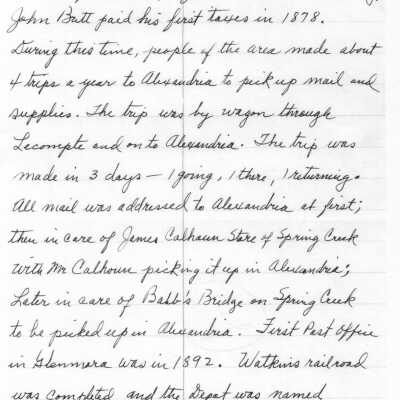 John Britt paid his first taxes in 1878.
During this time, people of the area made about
4 trips a year to Alexandria to pick up mail and
supplies. The trip was by wagon through
Lecompte and on to Alexandria. The trip was
made in 3 days - 1 going, 1 there, 1 returning.
All mail was addressed to Alexandria at first;
then in care of James Calhoun Store of Spring Creek
with Mr Calhoun picking it up in Alexandria;
Later in care of Babb's Bridge on Spring Creek
to be picked up in Alexandria. First Post Office
in Glenmora was in 1892. Watkins railroad
was completed and the Depot was named